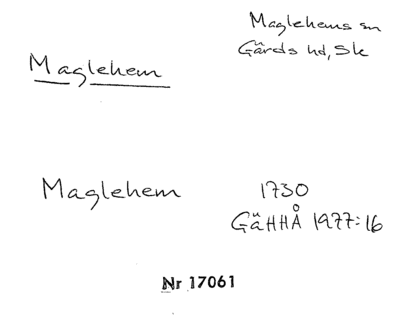 Maglehems sn
Gärds hd, Sk
Maglehem
Maglehem 1730
GäHHÅ 1977:16
Nr 17061